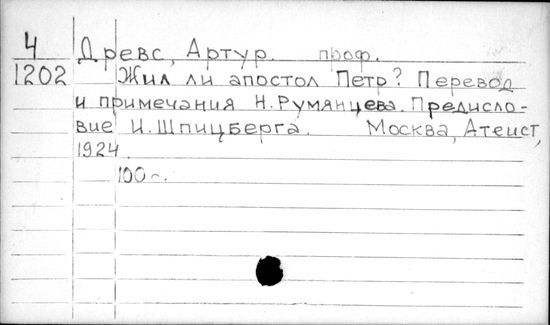 4 Древс, Артур. проф.
1202 Жил ли апостол Петр? Перевод
и примечания Н. Румянцева. Предисло-
вие И. Шпицберга. Москва, Атеист,
1924.
100 с.